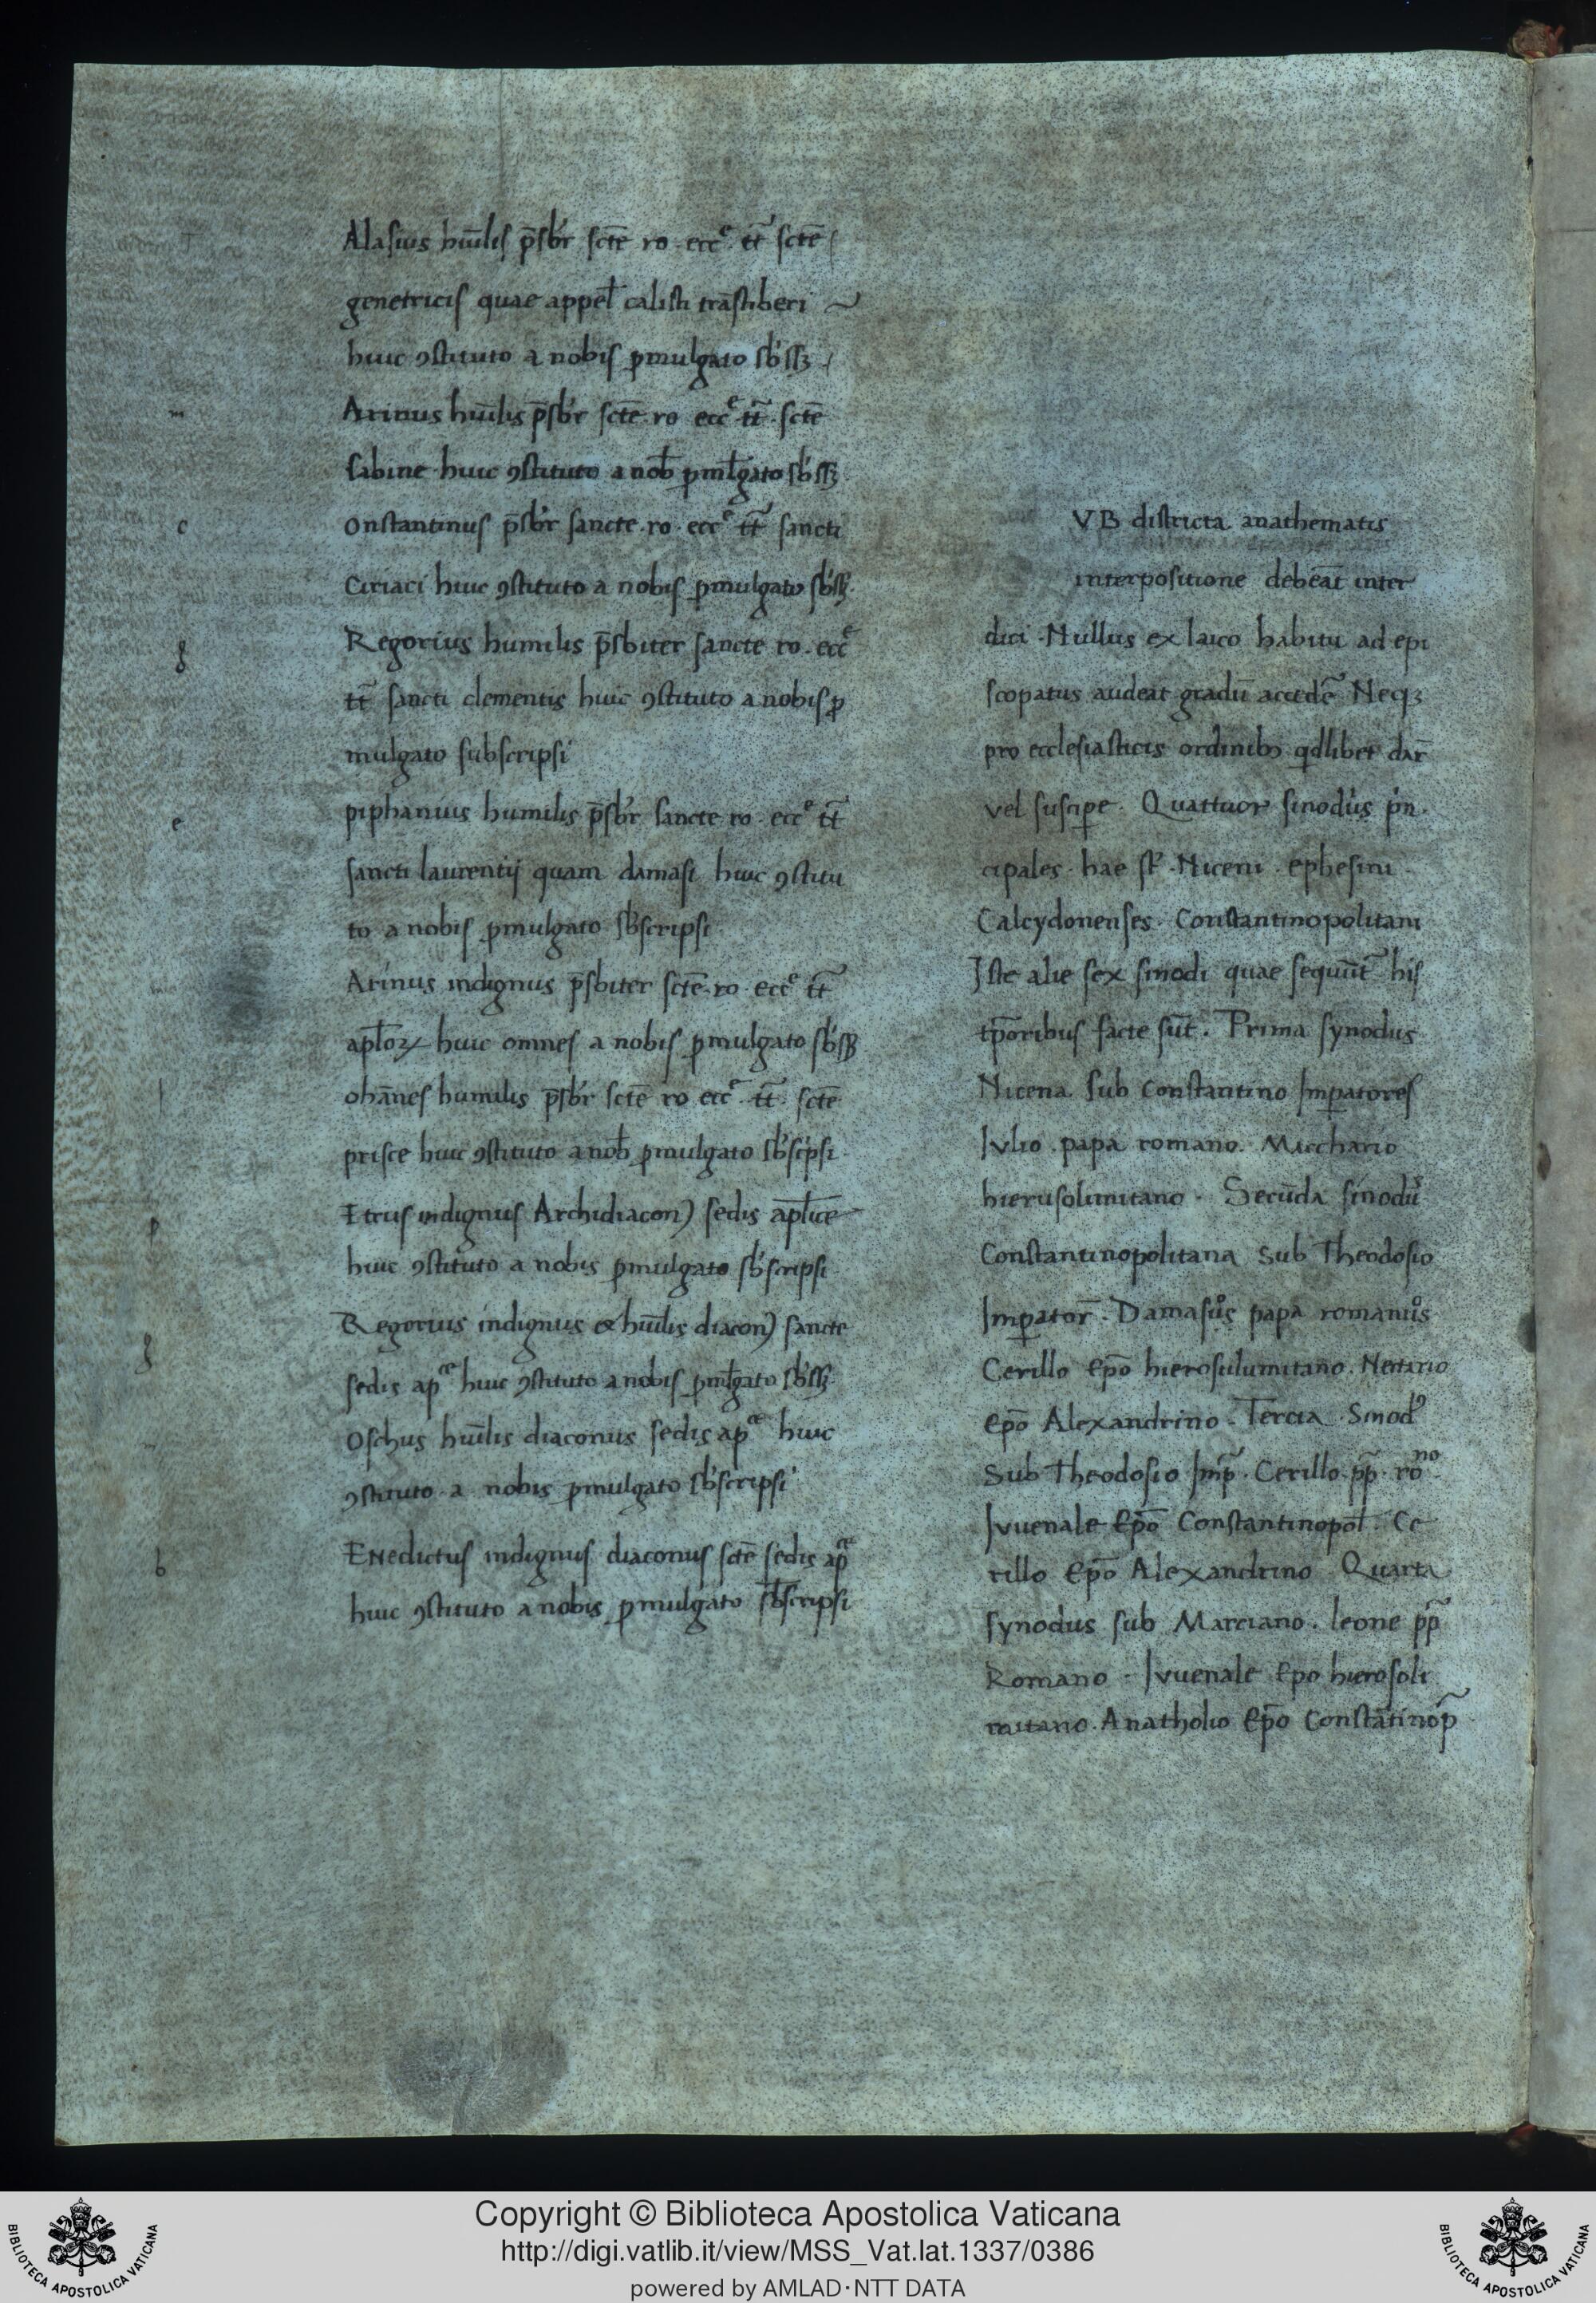 Alasius hum̄lis p̄sb̄r sctē ro. ecc̄ᵉ tt̄ sctē
genetricis quae appel̄ calisti trāstiberi
huic ꝯstituto a nobis ꝓmulgato sb̄ssꝫ
m
Arinus hum̄lis p̄sb̄r sctē. ro ecc̄ᵉ tt̄. sctē
sabine huic ꝯstituto a nob̄ ꝓml̄gato sb̄ssꝫ
c
onstantinus p̄sb̄r sancte. ro. ecc̄ᵉ tt̄ sancti
Ciriaci huic ꝯstituto a nobis ꝓmulgato sb̄ssꝫ.
g
Regorius humilis p̄sbiter sancte ro. ecc̄ᵉ
tt̄ sancti clementis huic ꝯstituto a nobis ꝓ
mulgato subscripsi
e
piphanius humilis p̄sb̄r sancte ro. ecc̄ᵉ tt̄
sancti laurentij quam damasi huic ꝯstitu
to a nobis ꝓmulgato sb̄scripsi
Arinus indignus p̄sbiter sctē. ro. ecc̄ᵉ tt̄
apl̄oꝝ huic omnes a nobis ꝓmulgato sb̄ssꝫ
I
ohānes humilis p̄sb̄r sctē ro ecc̄ᵉ. tt̄. sctē
prisce huic ꝯstituto a nob̄ ꝓmulgato sb̄scͥpsi.
p
Etrus indignus Archidiacon) sedis apl̄ice
huic ꝯstituto a nobis ꝓmulgato sb̄scripsi
g
Regorius indignus & hum̄lis diacon) sancte
sedis ap̄ᵉ huic ꝯstituto a nobis ꝓml̄gato sb̄ssꝫ
Oschus hum̄lis diaconus sedis ap̄ᵉ huic
ꝯstituto. a nobis ꝓmulgato sb̄scripsi
b
ENedictus indignus diaconus sctē sedis ap̄ᵉ
huic ꝯstituto a nobis ꝓmulgato sb̄scripsi
VB districta anathematis
interpositione debeāt inter
dici. Nullus ex laico habitu ad epi
scopatus audeat gradū accedē Neqꝫ
pro ecclesiasticis ordinibꝫ qd̄libet dar̄
vel suscipe. Quattuor sinodus pͥn.
cipales. hae st̄. Niceni. ephesini.
Calcydonenses. Constantinopolitani
Iste alie sex sinodi quae sequūt̄ his
tp̄oribus facte sūt. Prima synodus
Nicena. sub Constantino Imꝑatores
Iulio. papa romano. Macchario
hierusolimitano. Secūda sinodus
Constantinopolitana sub Theodosio
Imꝑator̄. Damasus papa romanus
Cerillo Ep̄o hierosulumitano. Nectario
Ep̄o Alexandrino. Tercia. Sinodꝰ
Sub Theodosio Imp̄. Cerillo. pp̄. roⁿᵒ.
Iuuenale Ep̄o Constantinopol̄. Ce
rillo Ep̄o Alexandrino. Quarta
synodus sub Marciano. leone pp̄
Romano. Iuuenale Epo hierosoli
mitano. Anatholio Ep̄o Constātinop̄
Copyright © Biblioteca Apostolica Vaticana
http://digi.vatlib.it/view/MSS_Vat.lat.1337/0386
powered by AMLAD·NTT DATA
BIBLIOTECA APOSTOLICA VATICANA
BIBLIOTECA APOSTOLICA VATICANA